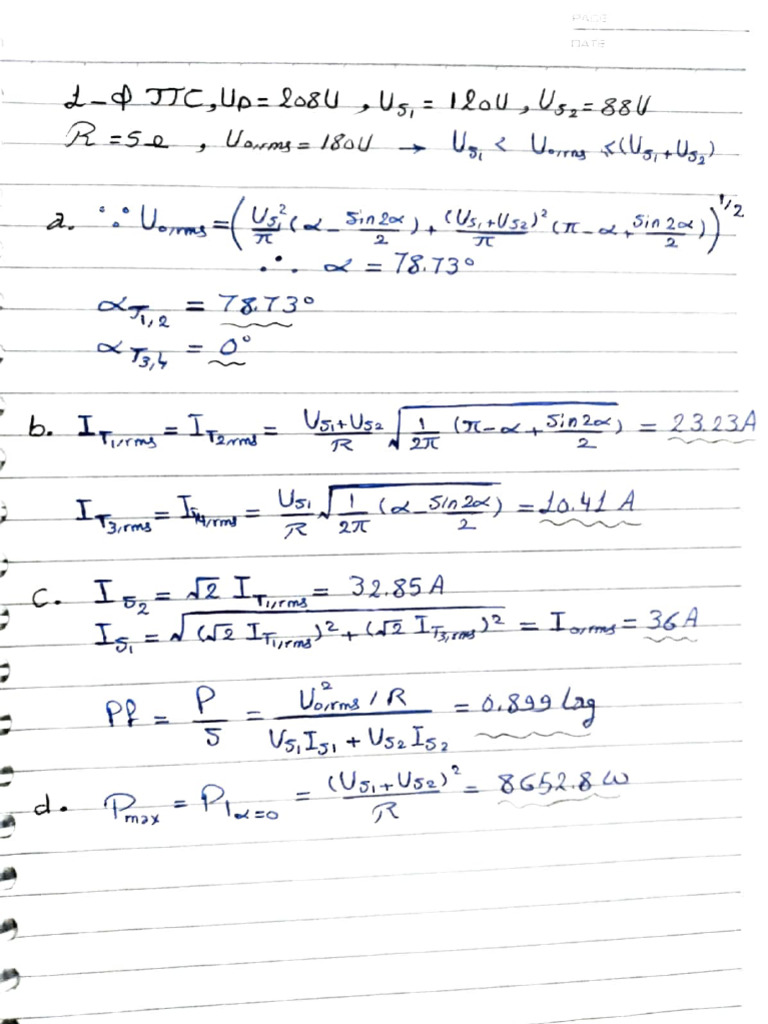 PAGE
DATE
1-Φ TTC, Up = 208V, Us₁ = 120V, Us₂ = 88V
R = 5Ω, Uo,rms = 180V → Us₁ < Uo,rms < (Us₁ + Us₂)
a. ∵ Uo,rms = (Us₁²/π (α - sin2α/2) + (Us₁+Us₂)²/π (π - α + sin2α/2))^1/2
∴ α = 78.73°
α T₁,₂ = 78.73°
α T₃,₄ = 0°
b. I T₁,rms = I T₂,rms = Us₁+Us₂/R √(1/2π (π - α + sin2α/2)) = 23.23A
I T₃,rms = I T₄,rms = Us₁/R √(1/2π (α - sin2α/2)) = 10.41 A
c. I s₂ = √2 I T₁,rms = 32.85 A
I s₁ = √((√2 I T₁,rms)² + (√2 I T₃,rms)²) = I o,rms = 36 A
Pf = P/S = U²o,rms / R / Us₁Is₁ + Us₂Is₂ = 0.899 Lag
d. Pmax = P|α=0 = (Us₁+Us₂)²/R = 8652.8 W